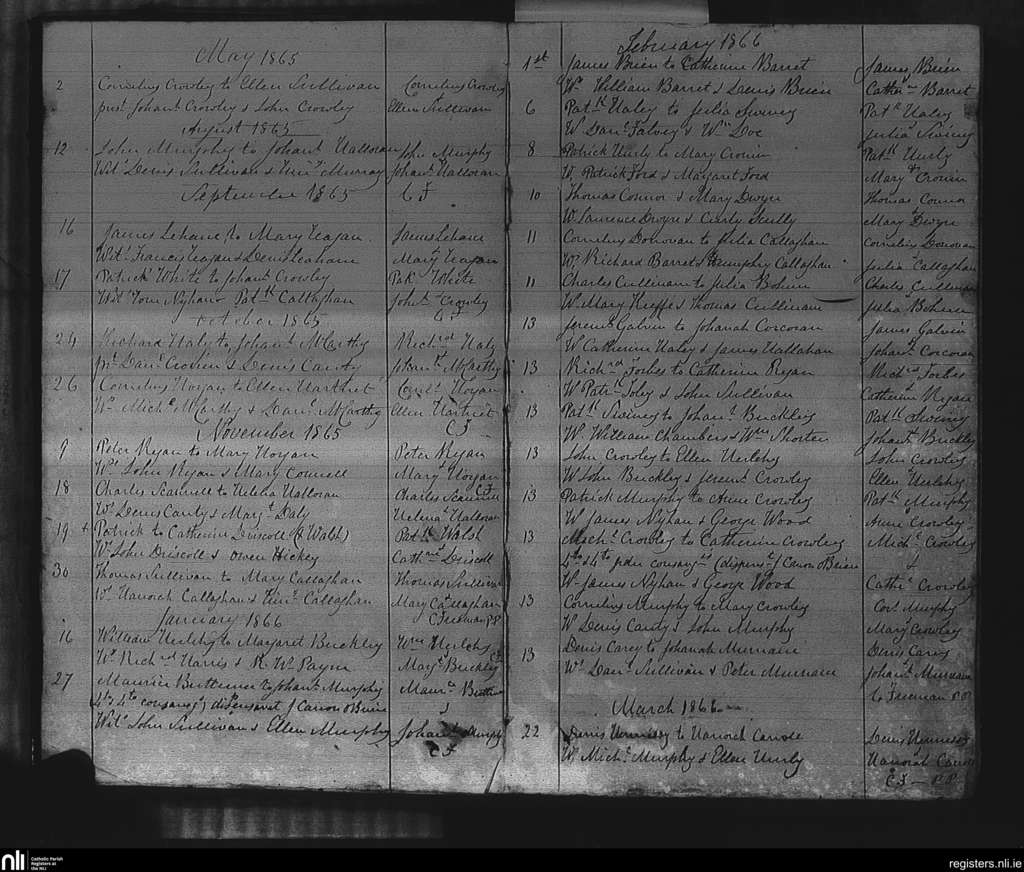 May 1865
2 Cornelius Crowley to Ellen Sullivan Cornelius Crowley
prest Johant Crowly & John Crowley Ellen Sullivan
August 1865
12 John Murphy to Johant Halloran John Murphy
Wits Denis Sullivan & Murray Johant Halloran
September 1865 C F
16 James Lehane to Mary Teagan James Lehane
Wits Francis Teagan & Denis Leahane Mary Teagan
17 Patrick White to Johant Crowley Pat White
Wit Tom Nyhan Patk Callaghan Joht Crowley
C F
October 1865
24 Richard Haly to Johant McCarthy Richrd Haly
prt Danl Cronin & Denis Canty Johant McCarthy
26 Cornelius Horgan to Ellen Hartnet Corls Horgan
Ws Michl McCarthy & Danl McCarthy Ellen Hartnet
November 1865 C F
9 Peter Regan to Mary Horgan Peter Regan
Ws John Regan & Mary Connell Mary Horgan
C F
18 Charles Scannell to Helena Halloran Charles Scannell
Ws Denis Canty & Margt Daly Helena Halloran
19 + Patrick to Catherine Driscoll (& Walsh) Patk Walsh
Ws John Driscoll & Owen Hickey Cathne Driscoll
30 Thomas Sullivan to Mary Callaghan Thomas Sullivan
Ws Hanorah Callaghan & Callaghan Mary Callaghan
January 1866 C Freeman P.P
16 William Herlihy to Margaret Buckley Wm Herlihy
Ws Richrd Harris & R. Wm Payne Mayt Buckley
C F
27 Maurice Buttimer to Johant Murphy Maurce Buttimer
(4th & 4th cousans) dispensavet f Canon O'Brien
Wits John Sullivan & Ellen Murphy Johant Murphy
C F
February 1866
1st James Brien to Catherine Barret James Brien
Ws William Barret & Denis Brien Cathn Barret
6 Patk Haley to Julia Swiney Patk Haley
W Danl Falvey & Wm Doe Julia Swiney
8 Patrick Hurly to Mary Cronin Patk Hurly
W. Patrick Ford & Margaret Ford Mary Cronin
10 Thomas Connor & Mary Dwyer Thomas Connor
W Laurence Dwyre & Curly Scully Mary Dwyre
11 Cornelius Donovan to Julia Callaghan Cornelius Donovan
Ws Richard Barret & Humphry Callaghan Julia Callaghan
11 Charles Cullinane to Julia Bohern Charles Cullinane
W Mary Keeffe & Thomas Cullinane Julia Bohern
13 Jeremh Galvin to Johanah Corcoran James Galvin
W Catherine Haley & James Hallahan Johant Corcoran
13 Richrd Forbes to Catherine Regan Richd Forbes
W Patk Foley & John Sullivan Catherine Regan
13 Patk Swiney to Johant Buckley Patk Swiney
W. William Chambers & Wm Shorten Johant Buckley
13 John Crowley to Ellen Herlihy John Crowley
W John Buckley & Jeremh Crowley Ellen Herlihy
13 Patrick Murphy to Anne Crowley Patk Murphy
W James Nyhan & George Wood Anne Crowley
13 Michl Crowley to Catherine Crowley Michl Crowley
4th & 4th cousans (dispens f Canon O'Brien
W. James Nyhan & George Wood Cathe Crowley
13 Cornelius Murphy to Mary Crowley Cor. Murphy
W Denis Canty & John Murphy Mary Crowley
13 Denis Carey to Johanah Murnane Denis Carey
Ws Danl Sullivan & Peter Murnane Johant Murnane
C Freeman P.P.
March 1866
22 Denis Hennessy to Hanorah Carroll Denis Hennessy
W. Michl Murphy & Ellen Hurly Hanorah Carroll
C F — P.P.
nli Catholic Parish
Registers at
the NLI
registers.nli.ie